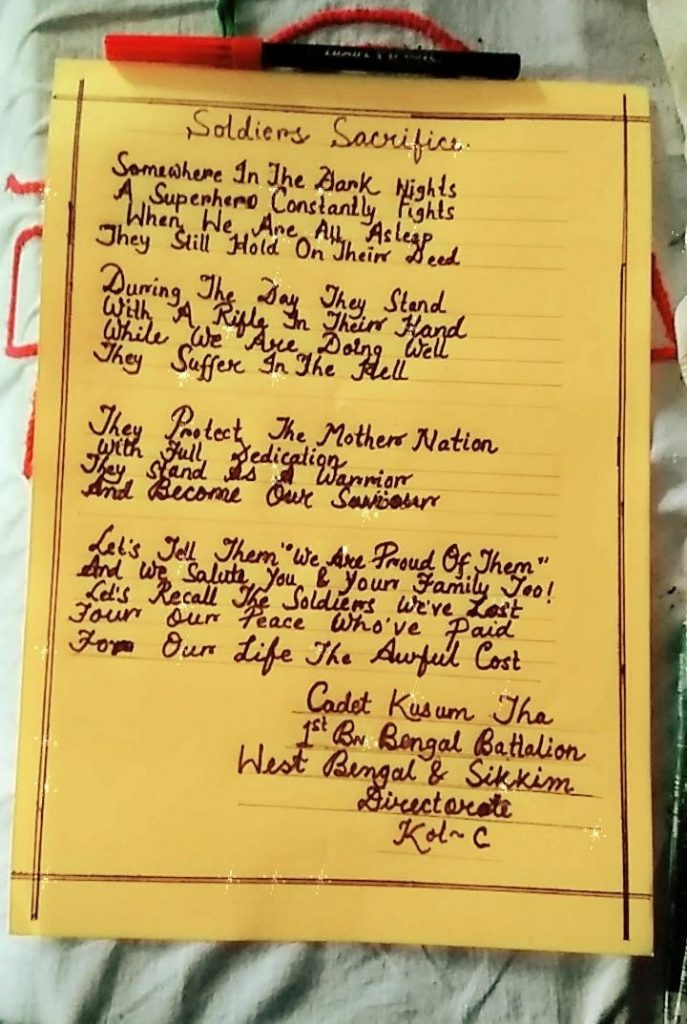 Soldiers Sacrifice.
Somewhere In The Dark Nights
A Superhero Constantly Fights
When We Are All Asleep
They Still Hold On Their Deed
During The Day They Stand
With A Rifle In Their Hand
While We Are Doing Well
They Suffer In The Hell
They Protect The Mother Nation
With Full Dedication
They Stand As A Warrior
And Become Our Saviour
Let's Tell Them "We Are Proud Of Them"
And We Salute You & Your Family Too!
Let's Recall The Soldiers We've Lost
Four Our Peace Who've Paid
For Our Life The Awful Cost
Cadet Kusum Jha
1st Bn Bengal Battalion
West Bengal & Sikkim
Directorate
Kol~C